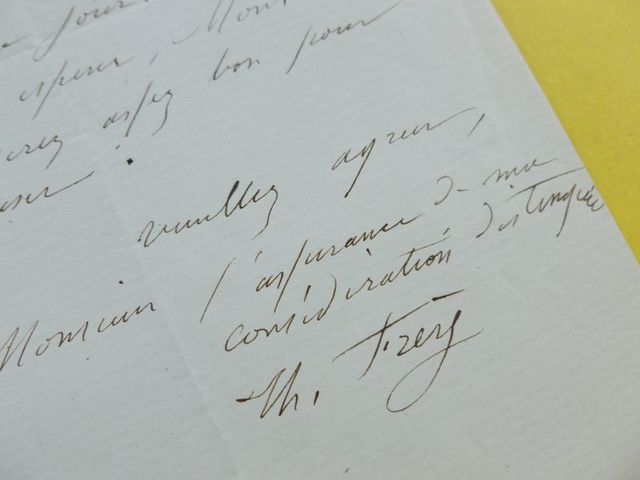 jour
espérer, Mon
assez bon pour
veuillez agréer,
Monsieur l'assurance de ma
considération distinguée
Th. Frère